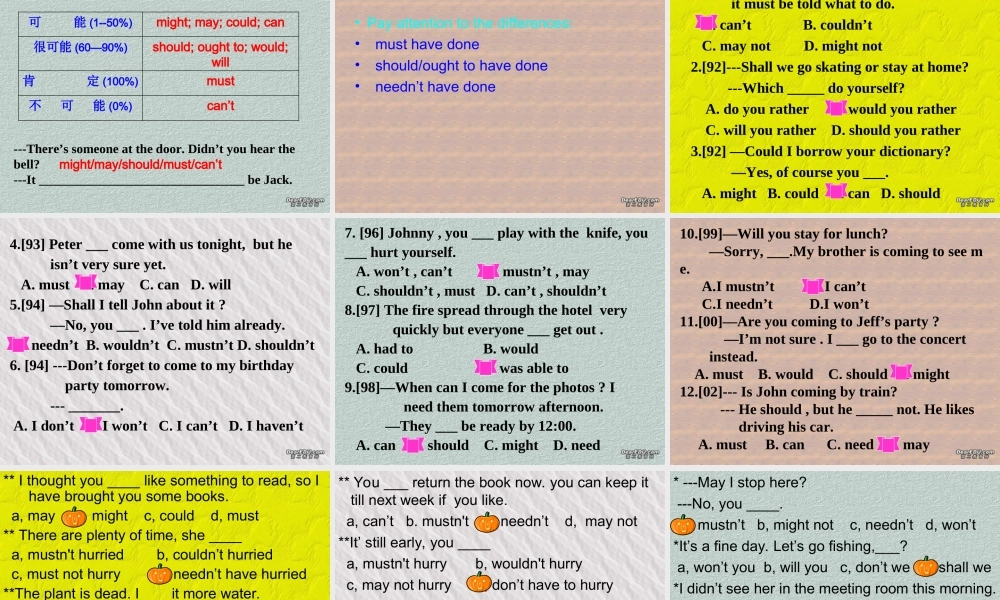 可 能 (1--50%) might; may; could; can
很可能 (60—90%) should; ought to; would;
will
肯 定 (100%) must
不 可 能 (0%) can't
---There's someone at the door. Didn't you hear the
bell? might/may/should/must/can't
---It ______________________________ be Jack.
• Pay attention to the differences:
• must have done
• should/ought to have done
• needn't have done
it must be told what to do.
can't B. couldn't
C. may not D. might not
2.[92]---Shall we go skating or stay at home?
---Which _____ do yourself?
A. do you rather would you rather
C. will you rather D. should you rather
3.[92] —Could I borrow your dictionary?
—Yes, of course you ___.
A. might B. could can D. should
4.[93] Peter ___ come with us tonight, but he
isn't very sure yet.
A. must may C. can D. will
5.[94] —Shall I tell John about it ?
—No, you ___ . I've told him already.
needn't B. wouldn't C. mustn't D. shouldn't
6. [94] ---Don't forget to come to my birthday
party tomorrow.
--- _______.
A. I don't I won't C. I can't D. I haven't
7. [96] Johnny , you ___ play with the knife, you
___ hurt yourself.
A. won't , can't mustn't , may
C. shouldn't , must D. can't , shouldn't
8.[97] The fire spread through the hotel very
quickly but everyone ___ get out .
A. had to B. would
C. could was able to
9.[98]—When can I come for the photos ? I
need them tomorrow afternoon.
—They ___ be ready by 12:00.
A. can should C. might D. need
10.[99]—Will you stay for lunch?
—Sorry, ___.My brother is coming to see m
e.
A.I mustn't I can't
C.I needn't D.I won't
11.[00]—Are you coming to Jeff's party ?
—I'm not sure . I ___ go to the concert
instead.
A. must B. would C. should might
12.[02]--- Is John coming by train?
--- He should , but he _____ not. He likes
driving his car.
A. must B. can C. need may
** I thought you ____ like something to read, so I
have brought you some books.
a, may might c, could d, must
** There are plenty of time, she ____
a, mustn't hurried b, couldn't hurried
c, must not hurry needn't have hurried
**The plant is dead. I it more water.
** You ___ return the book now. you can keep it
till next week if you like.
a, can't b. mustn't needn't d, may not
**It' still early, you ____
a, mustn't hurry b, wouldn't hurry
c, may not hurry don't have to hurry
* ---May I stop here?
---No, you ____.
mustn't b, might not c, needn't d, won't
*It's a fine day. Let's go fishing,___?
a, won't you b, will you c, don't we shall we
*I didn't see her in the meeting room this morning.